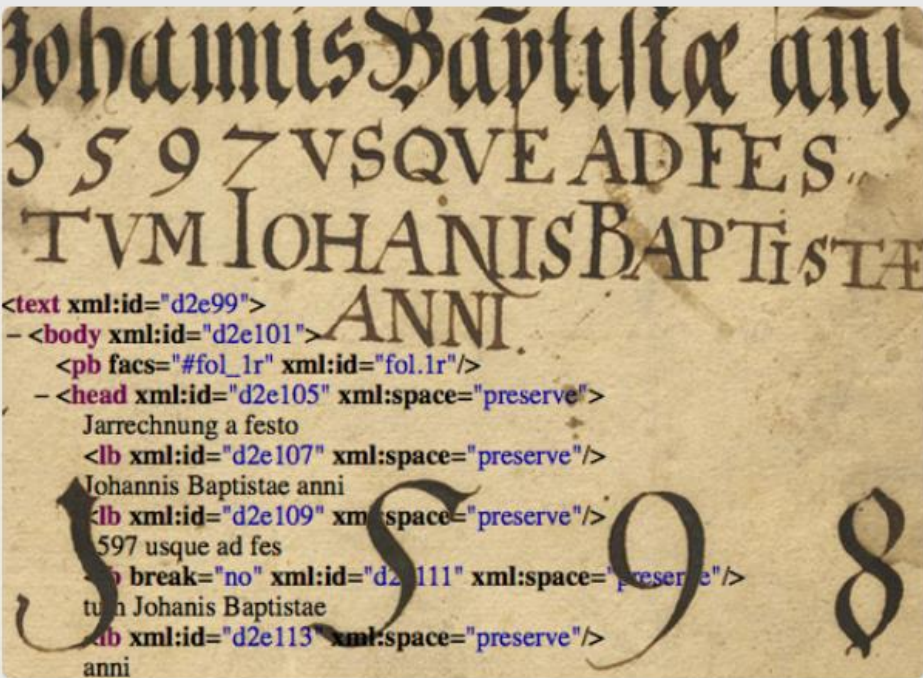 Johannis Baptistæ anj
1597 VSQVE AD FES
TVM IOHANIS BAPTISTÆ
ANNI.
1598
<text xml:id="d2e99">
– <body xml:id="d2e101">
<pb facs="#fol_1r" xml:id="fol.1r"/>
– <head xml:id="d2e105" xml:space="preserve">
Jarrechnung a festo
<lb xml:id="d2e107" xml:space="preserve"/>
Johannis Baptistae anni
<lb xml:id="d2e109" xml:space="preserve"/>
597 usque ad fes
<lb break="no" xml:id="d2e111" xml:space="preserve"/>
tum Johanis Baptistae
<lb xml:id="d2e113" xml:space="preserve"/>
anni